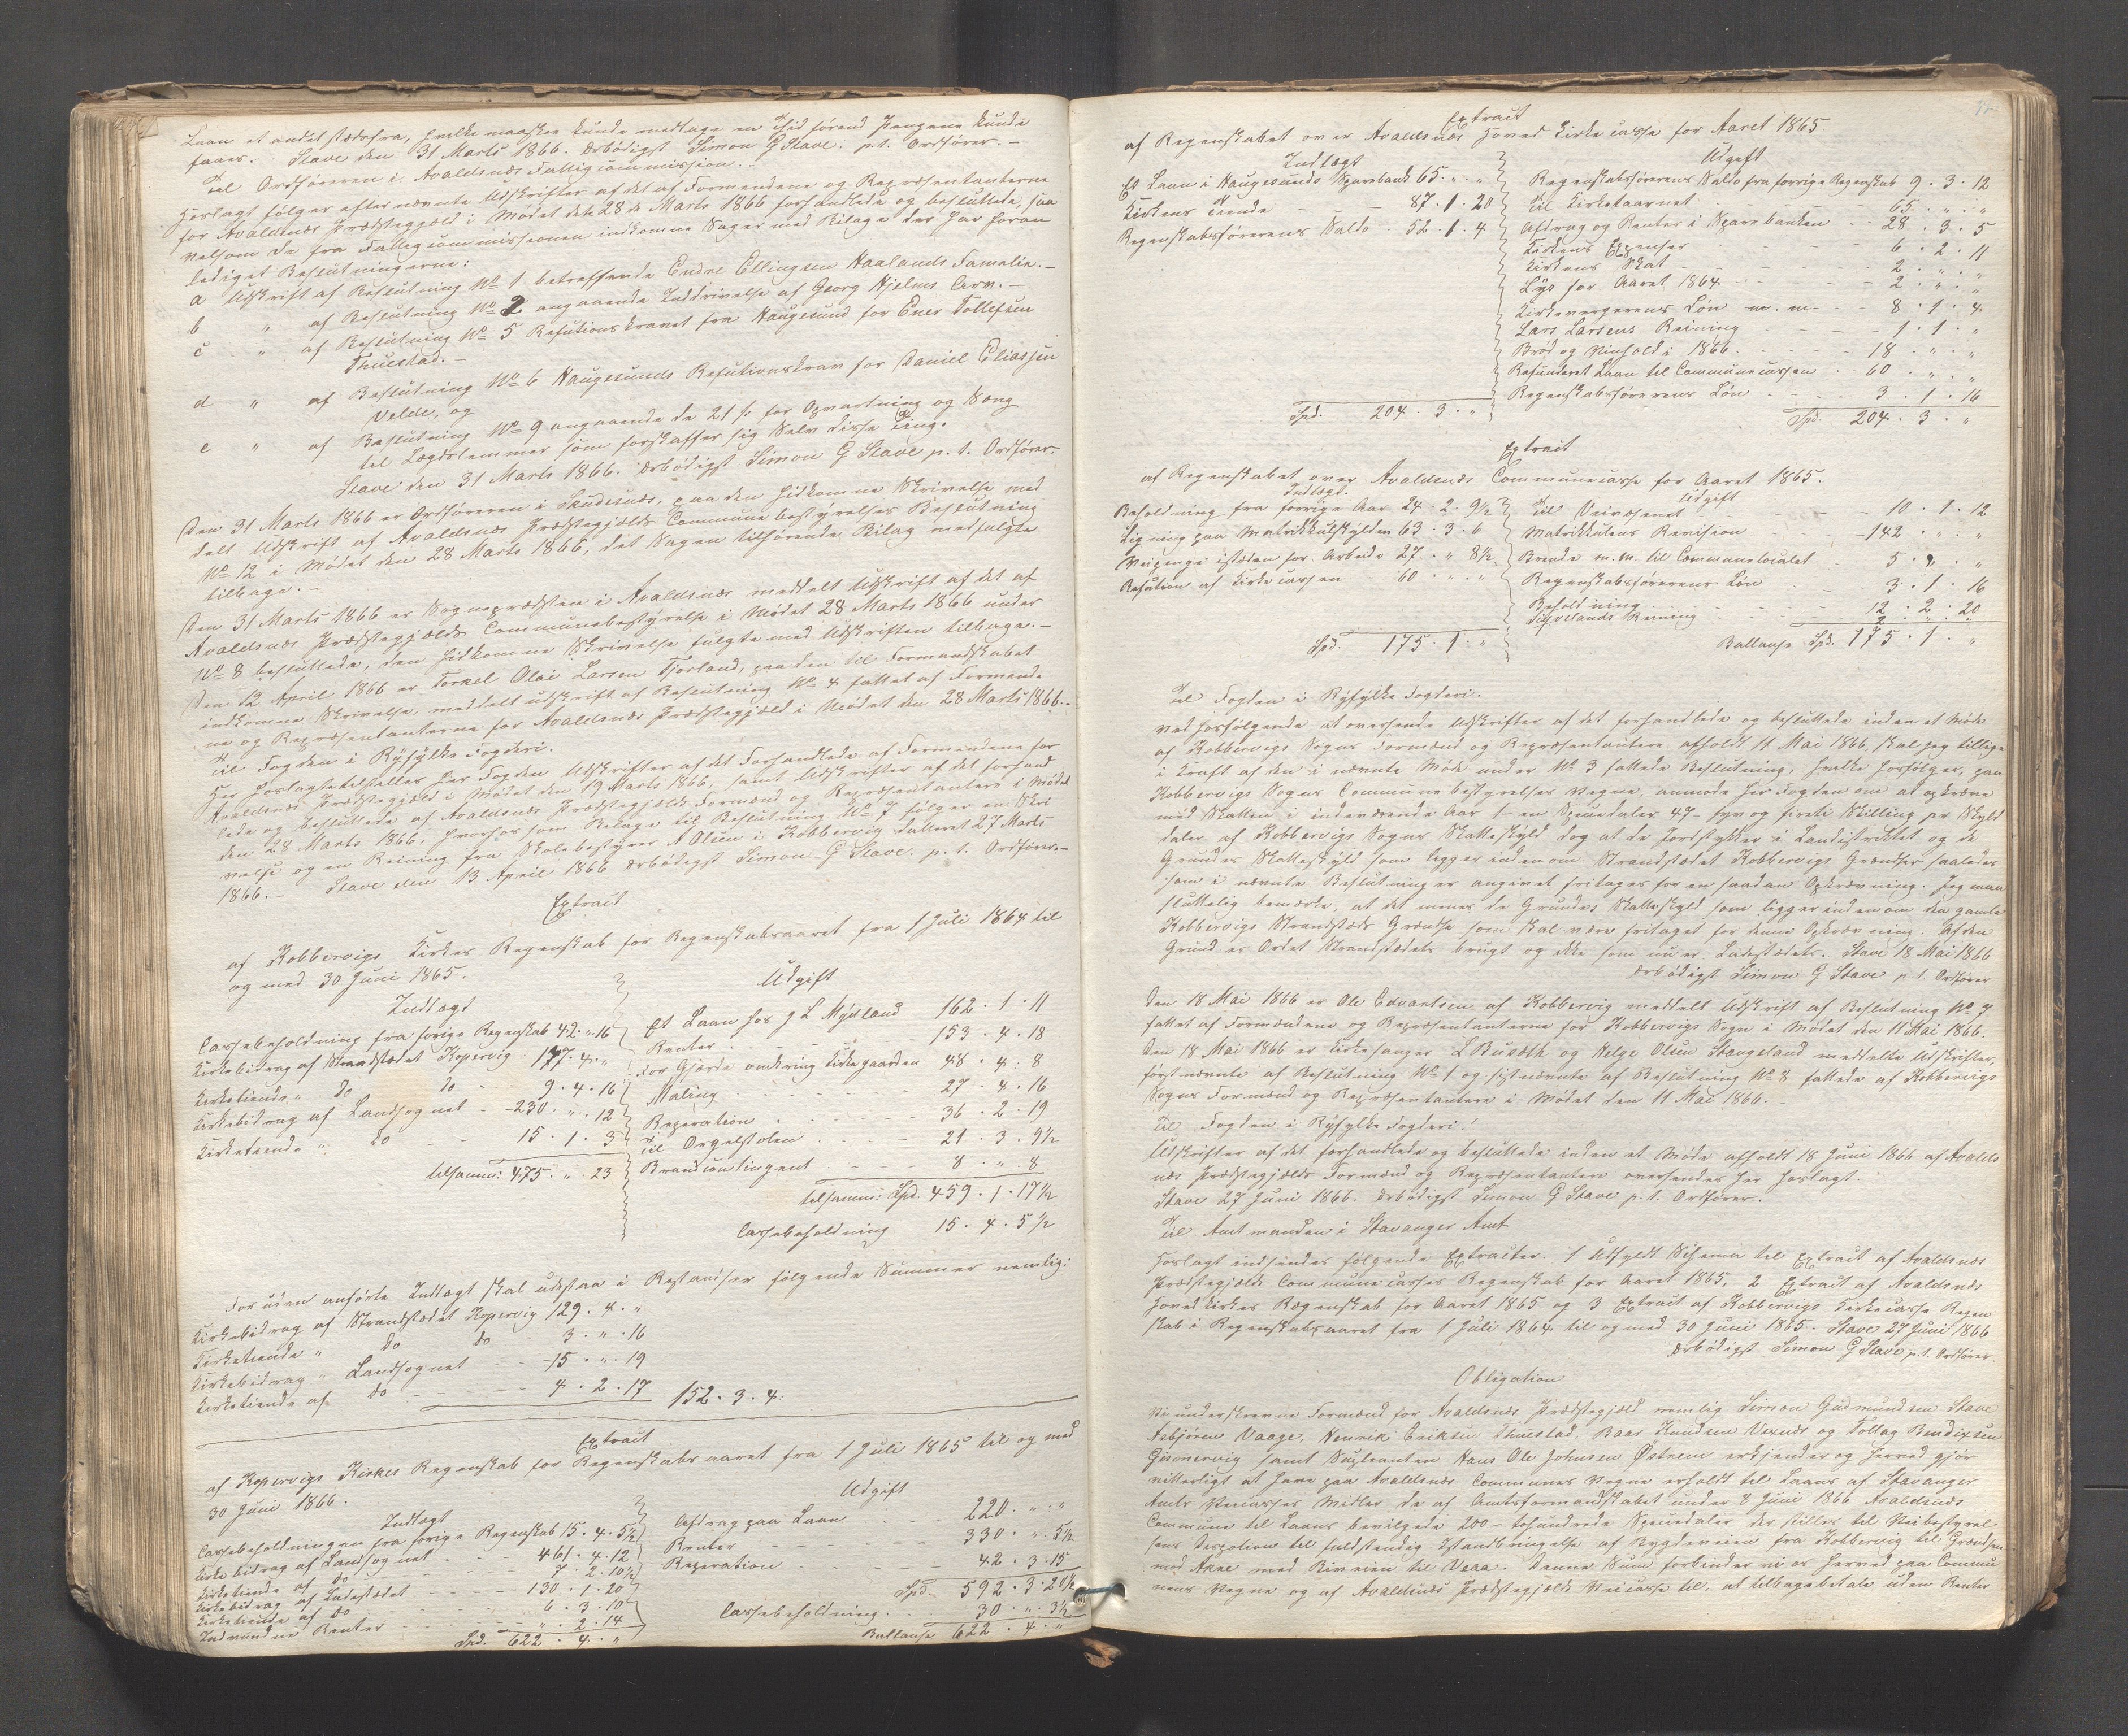 Laan et andet stædsfra, hvilke maaskee kunde medtage en Tid førend Pengene kunde
faaes. Stave den 31 Marts 1866. Ærbødigst Simon G Stave. p.t. Ordfører.-
Til Ordføreren i Avaldsnæs Fattigcommission.-
Hoslagt følger efternævnte Udskrifter af det af Formendene og Representanterne
for Avaldsnæs Præstegjæld i Mødet dete 28de Marts 1866 forhandlede og besluttede, saa
velsom de fra Fattigcommissionen indkomne Sager med Bilage der har foran
lediget Beslutningerne:
a Udskrift af Beslutning No 1 betreffende Endre Ellingsen Haalands Famelie.-
b " af Beslutning No 2 angaaende Inddrivelse af Georg Hjelms Arv.-
c " af Beslutning No 5 Refutionskravet fra Haugesund for Ener Tollefsen
Thuestad.-
d " af Beslutning No 6 Haugesunds Refutionskrav for Daniel Eliassen
Velde, og
e " af Beslutning No 9 angaaende de 21 s. for Opvartning og Seng
til Lægdslemmer som forskaffer sig Selv disse Ting.
Stave den 31 Marts 1866. Ærbødigst Simon G Stave p. t. Ordfører.
Den 31 Marts 1866 er Ordføreren i Skudesnæs, paa den hidkomne Skrivelse med
delt Udskrift af Avaldsnæs Præstegjælds Communebestyrelses Beslutning
No 12 i Mødet den 28 Marts 1866, det Sagen tilhørende Bilag medfulgte
tilbage.-
Den 31 Marts 1866 er Sognepræsten i Avaldsnæs meddelt Udskrift af det af
Avaldsnæs Præstegjælds Communebestyrelse i Mødet 28 Marts 1866 under
No 8 besluttede, den hidkomne Skrivelse fulgte med Udskriften tilbage.-
Den 12 April 1866 er Torkel Olai Larsen Tjosland, paa den til Formandskabet
indkomne Skrivelse, meddelt udskrift af Beslutning No 4 fattet af Formende
ne og Representanterne for Avaldsnæs Præstegjæld i Mødet den 28 Marts 1866.-
Til Fogden i Ryfylke Fogderi.
Her hoslagte tilstilles Her Fogden Udskrifter af det Forhandlede af Formendene for
Avaldsnæs Præstegjæld i Mødet den 19 Marts 1866, samt Udskrifter af det forhand
lede og besluttede af Avaldsnæs Præstegjælds Formænd og Representantere i Mødet
den 28 Marts 1866, hvorhos som Bilage til Beslutning No 7 følger en Skri
velse og en Reining fra Skolebestyrer A Olsen i Kobbervig datteret 27 Marts
1866.- Stave den 13 April 1866 Ærbødigst Simon G Stave. p. t. Ordfører.-
Extract
af Kobbervigs Kirkes Regenskab for Regenskabsaaret fra 1 Juli 1864 til
og med 30 Juni 1865.
Indtægt
Cassebeholdning fra forrige Regenskab 42 . " . 16
Kirkebidrag af Strandstædet Kopervig . 177 . 4 . "
Kirketiende " do do - 9 . 4 . 16
Kirkebidrag af Landsognet - 230 . " . 12
Kirketiende " do - - 15 . 1 . 3
tilsamm: 475 . " . 23
Udgift
Et Laan hos J L Mysland 162 . 1 . 11
Renter . 153 . 4 . 18
For Gjærde omkring Kirkegaarden 48 . 4 . 8
Maling . 27 . 4 . 16
Reperation . 36 . 2 . 19
Til Orgelstolen . 21 . 3 . 9½
Brandcontingent . 8 . " . 8
tilsamm: Spd. 459 . 1 . 17½
Cassebeholdning 15 . 4 . 5½
For uden anførte Indtægt skal udestaa i Restanser følgende Summer nemlig:
Kirkebidrag af Strandstædet Kopervig 129 . 4 . "
Kirketiende " do do - 3 . " . 16
Kirkebidrag " Landsognet - - 15 . " . 19
Kirketiende af do - - - 4 . 2 . 17 152 . 3 . 4.
Extract
af Kopervigs Kirkes Regenskab for Regenskabsaaret fra 1 Juli 1865 til og med
30 Juni 1866.
Indtægt
Cassebeholdningen fra forrige Regenskab 15 . 4 . 5½
Kirkebidrag af Landsognet - - 461 . 4 . 12
Kirketiende af do - - 7 . 2 . 10½
Kirkebidrag af Ladestædet - - 130 . 1 . 20
Kirketiende af do - - 6 . 3 . 10
Indvundne Renter - - " . 2 . 14
Spd. 622 . 4 . "
Udgift
Afdrag paa Laan - - 220 . " . "
Renter - - 330 . " . 5½
Reperation - - 42 . 3 . 15
Spd. 592 . 3 . 20½
Cassebeholdning . 30 . " . 3½
Ballanse 622 . 4 . "
Extract
af Regenskabet over Avaldsnæs Hoved Kirkecasse for Aaret 1865
Indtægt
Et Laan i Haugesunds Sparebank 65 . " . "
Kirkens Tiende - - 87 . 1 . 20
Regenskabsførerens Saldo . 52 . 1 . 4
Spd. 204 . 3 . "
Udgift
Regenskabsførerens Saldo fra forrige Regenskab 9 . 3 . 12
Til Kirketaarnet - - 65 . " . "
Afdrag og Renter i Sparebanken - - 28 . 3 . 5
Kirkens Expenser - - 6 . 2 . 11
Kirkens Skat - - 2 . " . "
Lys for Aaret 1864 - - 2 . " . "
Kirkevergerens Løn m.m - - 8 . 1 . 4
Lars Larsens Reining - - 1 . 1 . "
Brød og Vinhold i 1866 . - - 18 . " . "
Refunderet Laan til Communecassen - - 60 . " . "
Regenskabsførerens Løn - - 3 . 1 . 16
Spd. 204 . 3 . "
Extract
af Regenskabet over Avaldsnæs Communecasse for Aaret 1865.
Indtægt.
Beholdning fra forrige Aar 24 . 2 . 9½
Ligning paa Matrikkulskylden 63 . 3 . 6
Veipenge istæden for Arbeide 27 . " 8½
Refution af Kirkecassen - 60 . " . "
Spd. 175 . 1 . "
Udgift
Til Veivæsenet - - 10 . 1 . 12
Matrikkulens Revision - - 142 . " . "
Brende m.m. til Communelocalet - 5 . " . "
Regenskabsførerens Løn - 3 . 1 . 16
Beholdning - - 12 . 2 . 20
Reining - - 2 . " . "
Ballanse Spd. 175 . 1 . "
Til Fogden i Ryfylke Fogderi.
Ved hosfølgende at oversende Udskrifter af det forhandlede og besluttede inden et Møde
af Kobbervigs Sogns Formænd og Repræsentantere afholdt 11 Mai 1866, skal jeg tillige
i Kraft af den i nævnte Møde under No 3 fattede Beslutning, hvilke hosfølger, paa
Kobbervigs Sogns Communebestyrelses Vegne, anmode Her Fogden om at opkræve
med Skatten i indeværende Aar 1- en Speciedaler 47- syv og fireti Skilling pr Skyld
daler af Kobbervigs Sogns Skatteskyld dog at de Jordstykker i Landistriktet og de
Grundes Skatteskyld som ligger indenom Strandstædet Kobbervigs Grændser saaledes
som i nævnte Beslutning er angivet fritages for en saadan Opkrævning. Jeg maa
sluttelig bemærke, at det menes de Grundes Skatteskyld som ligger indenom den gamle
Kobbervigs Strandstæds Grændse som skal være fritaget for denne Opkrævning. Af den
Grund er Ordet Strandstædets brugt og ikke som nu er Ladestædets. Stave 18 Mai 1866
Ærbødigst Simon G Stave p. t. Ordfører
Den 18 Mai 1866 er Ole Edvartsen af Kobbervig meddelt Udskrift af Beslutning No 7
fattet af Formændene og Representanterne for Kobbervigs Sogn i Mødet den 11 Mai 1866.
Den 18 Mai 1866 er Kirkesanger L Busæth og Helge Olsen Stangeland meddelte Udskrifter,
førstnævnte af Beslutning No 1 og sistnævnte af Beslutning No 8 fattede af Kobbervigs
Sogns Formænd og Representantere i Mødet den 11 Mai 1866.-
Til Fogden i Ryfylke Fogderi!
Udskrifter af det forhandlede og besluttede inden et Møde afholdt 18 Juni 1866 af Avalds
næs Præstegjælds Formænd og Representantere oversendes her hoslagt.
Stave 27 Juni 1866. Ærbødigst Simon G Stave p. t. Ordfører.
Til Amtmanden i Stavanger Amt
Hoslagt indsendes følgende Extracter. 1 Udfyldt Schema til Extract af Avaldsnæs
Præstegjælds Communecasses Regenskab for Aaret 1865, 2 Extract af Avaldsnæs
Hovedkirkes Regenskab for Aaret 1865 og 3 Extract af Kobbervigs Kirkecasse Regen
skab i Regenskabsaaret fra 1 Juli 1864 til og med 30 Juni 1865. Stave 27 Juni 1866
Ærbødigst Simon G Stave p. t. Ordfører.
Obligation
Vi underskrevne Formænd for Avaldsnæs Præstegjæld nemlig Simon Gudmundsen Stave
Asbjøren Vaage, Henrik Eriksen Thuestad, Baar Knudsen Vexnæs og Tollag Bendixsen
Gismervig samt Supleanten Hans Ole Johnsen Østrem erkjender og herved gjør
vitterligt at have paa Avaldsnæs Communes Vegne erholdt til Laans af Stavanger
Amts Veicasses Midler de af Amtsformandskabet under 8 Juni 1866 Avaldsnæs
Commune til Laans bevilgede 200- tohundrede Speciedaler der stilles til Veibestyrel
sens Desposion til fuldstendig Istandbringelse af Bygdeveien fra Kobbervig til Grændsen
mod Akre med Biveien til Veaa. Denne Sum forbinder vi os herved paa Commu
nens Vegne og af Avaldsnæs Præstegjælds Veicasse til, at tilbagebetale uden Renter